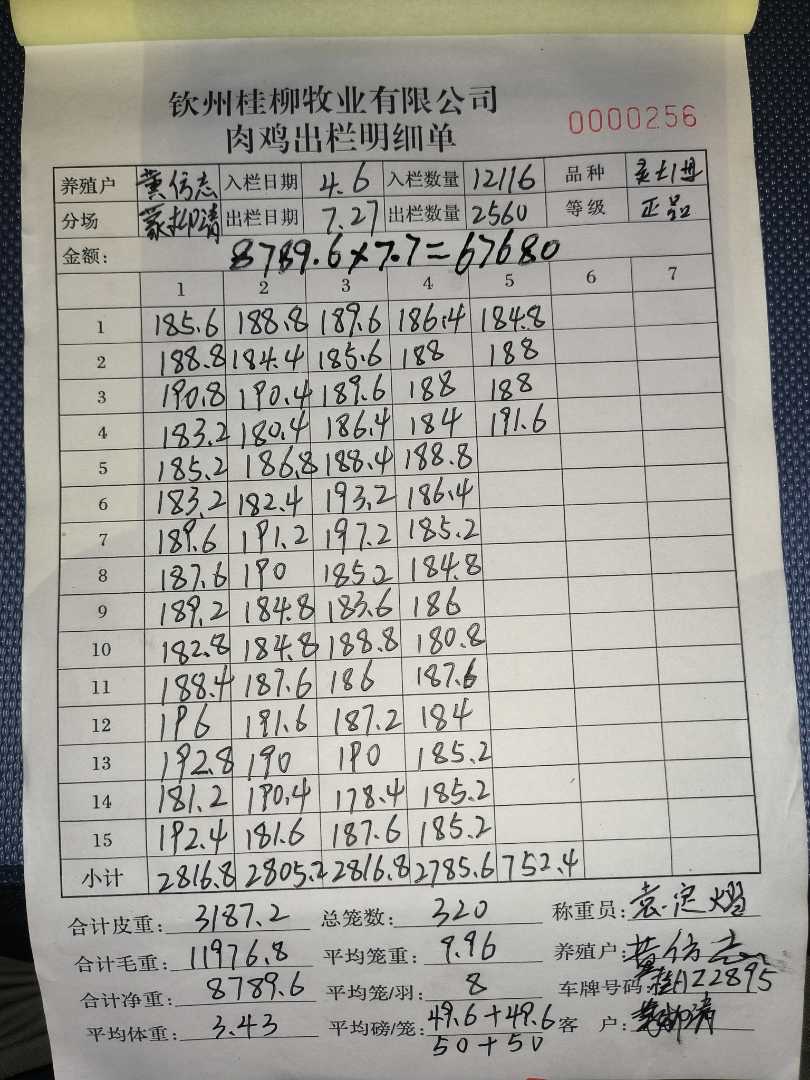 钦州桂柳牧业有限公司
肉鸡出栏明细单 0000256
养殖户 黄仿志 入栏日期 4.6 入栏数量 12116 品种
分场 蒙柳清 出栏日期 7.27 出栏数量 2560 等级 正品
金额: 8789.6×7.7=67680
1 2 3 4 5 6 7
1 185.6 188.8 189.6 186.4 184.8
2 188.8 184.4 185.6 188 188
3 190.8 190.4 189.6 188 188
4 183.2 180.4 186.4 184 191.6
5 185.2 186.8 188.4 188.8
6 183.2 182.4 193.2 186.4
7 189.6 191.2 197.2 185.2
8 187.6 190 185.2 184.8
9 189.2 184.8 183.6 186
10 182.8 184.8 188.8 180.8
11 188.4 187.6 186 187.6
12 196 191.6 187.2 184
13 192.8 190 190 185.2
14 181.2 190.4 178.4 185.2
15 192.4 181.6 187.6 185.2
小计 2816.8 2805.2 2816.8 2785.6 752.4
合计皮重: 3187.2 总笼数: 320 称重员:
合计毛重: 11976.8 平均笼重: 9.96 养殖户: 黄仿志
合计净重: 8789.6 平均笼/羽: 8 车牌号码:
平均体重: 3.43 平均磅/笼: 49.6+49.6 客 户:
50+50